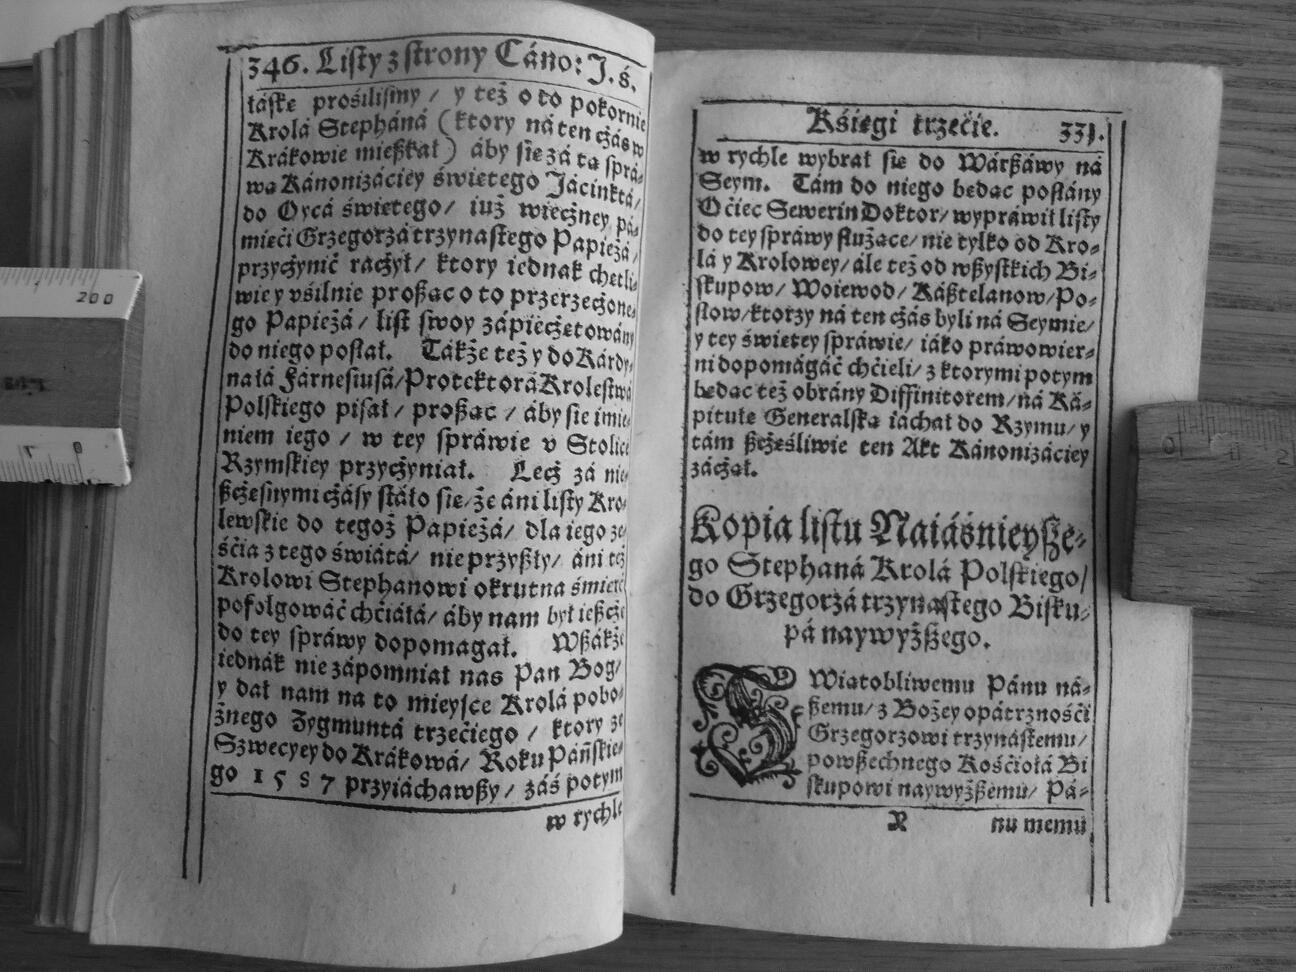 346. Listy z strony Cáno: J. ś.
łáskę prośilismy / y też o to pokornie
Krolá Stepháná (ktory ná ten cżás w
Krákowie mießkał) áby się zá tą sprá-
wą Kánonizáciey świętego Jácinktá /
do Oycá świętego / iuż wiecżney pá-
mięći Grzegorzá trzynastego Papieżá /
przycżynić racżył / ktory iednák chętli-
wie y vśilnie proßąc o to przerzecżone-
go Papieżá / list swoy zápiecżętowány
do niego posłał. Tákże też y do Kárdy-
nałá Fárnesiusá / Protektorá Krolestwá
Polskiego pisał / proßąc / áby się imie-
niem iego / w tey spráwie v Stolice
Rzymskiey przycżyniał. Lecż zá nie-
ßcżęsnymi cżásy stáło się / że áni listy Kro-
lewskie do tegoż Papieżá / dla iego ze-
śćia z tego świátá / nie przyßły / áni też
Krolowi Stephanowi okrutna śmierć
pofolgowáć chćiáłá / áby nam był ießcże
do tey spráwy dopomagał. Wßákże
iednák nie zápomniał nas Pan Bog /
y dał nam na to mieysce Krolá pobo-
żnego Zygmuntá trzećiego / ktory ze
Szwecyey do Krákowá / Roku Páńskie-
go 1587 przyiáchawßy / záś potym
w rychle
Kśięgi trzećie. 331.
w rychle wybrał się do Wárßáwy ná
Seym. Tám do niego będąc posłány
Oćiec Sewerin Doktor / wypráwił listy
do tey spráwy służące / nie tylko od Kro-
lá y Krolowey / ále też od wßystkich Bi-
skupow / Woiewod / Káßtelanow / Po-
słow / ktorzy ná ten cżás byli ná Seymie /
y tey świętey spráwie / iáko práwowier-
ni dopomágáć chćieli / z ktorymi potym
będąc też obrány Diffinitorem / ná Ká-
pitułę Generalską iáchał do Rzymu / y
tám ßcżęśliwie ten Akt Kánonizáciey
zácżął.
Kopia listu Naiáśnieyße-
go Stepháná Krolá Polskiego /
do Grzegorzá trzynastego Bisku-
pá naywyżßego.
SWiątobliwemu Pánu ná-
ßemu / z Bożey opátrznośći
Grzegorzowi trzynástemu /
powßechnego Kośćiołá Bi
skupowi naywyżßemu / Pá-
R nu memu